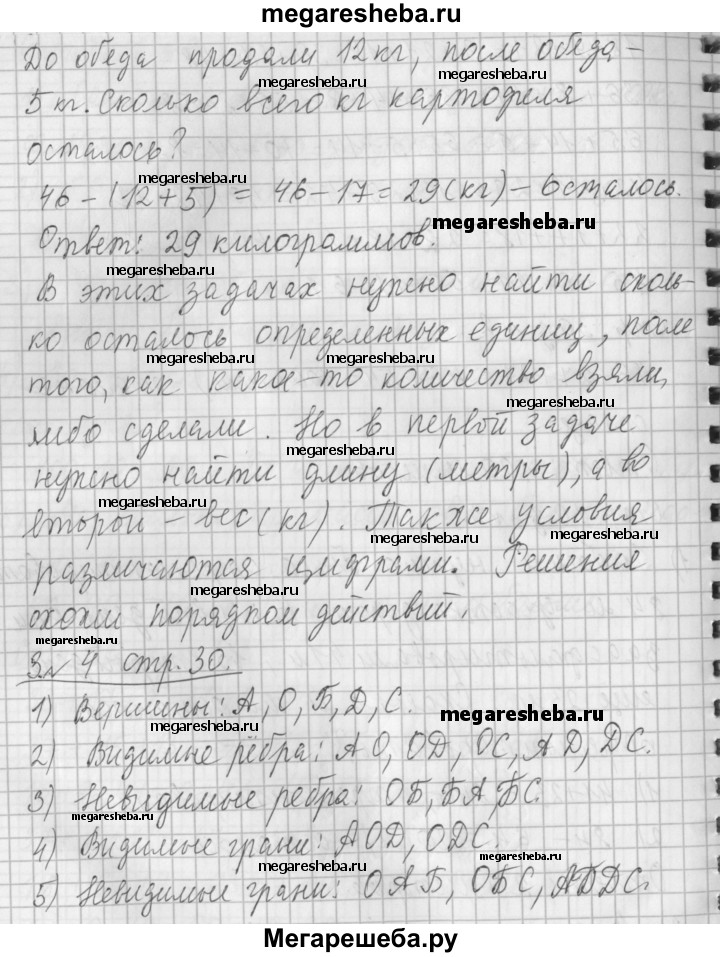 megaresheba.ru
До обеда продали 12 кг, после обеда –
megaresheba.ru megaresheba.ru
5 кг. Сколько всего кг картофеля
осталось?
megaresheba.ru
46 – (12 + 5) = 46 – 17 = 29 (кг) – осталось.
megaresheba.ru
Ответ: 29 килограммов.
megaresheba.ru
В этих задачах нужно найти сколь-
ко осталось определенных единиц, после
megaresheba.ru megaresheba.ru
того, как какое-то количество взяли,
либо сделали. Но в первой задаче
megaresheba.ru
нужно найти длину (метры), а во
megaresheba.ru
второй – вес (кг). Также условия
megaresheba.ru
различаются цифрами. Решения
схожи порядком действий.
megaresheba.ru
З. № 4 стр. 30.
1) Вершины: А, О, Б, Д, С.
megaresheba.ru
megaresheba.ru
2) Видимые рёбра: АО, ОД, ОС, АД, ДС.
3) Невидимые ребра: ОБ, БА, БС.
megaresheba.ru
4) Видимые грани: АОД, ОДС.
megaresheba.ru
megaresheba.ru
5) Невидимые грани: ОАБ, ОБС, АБДС.
Мегарешеба.ру